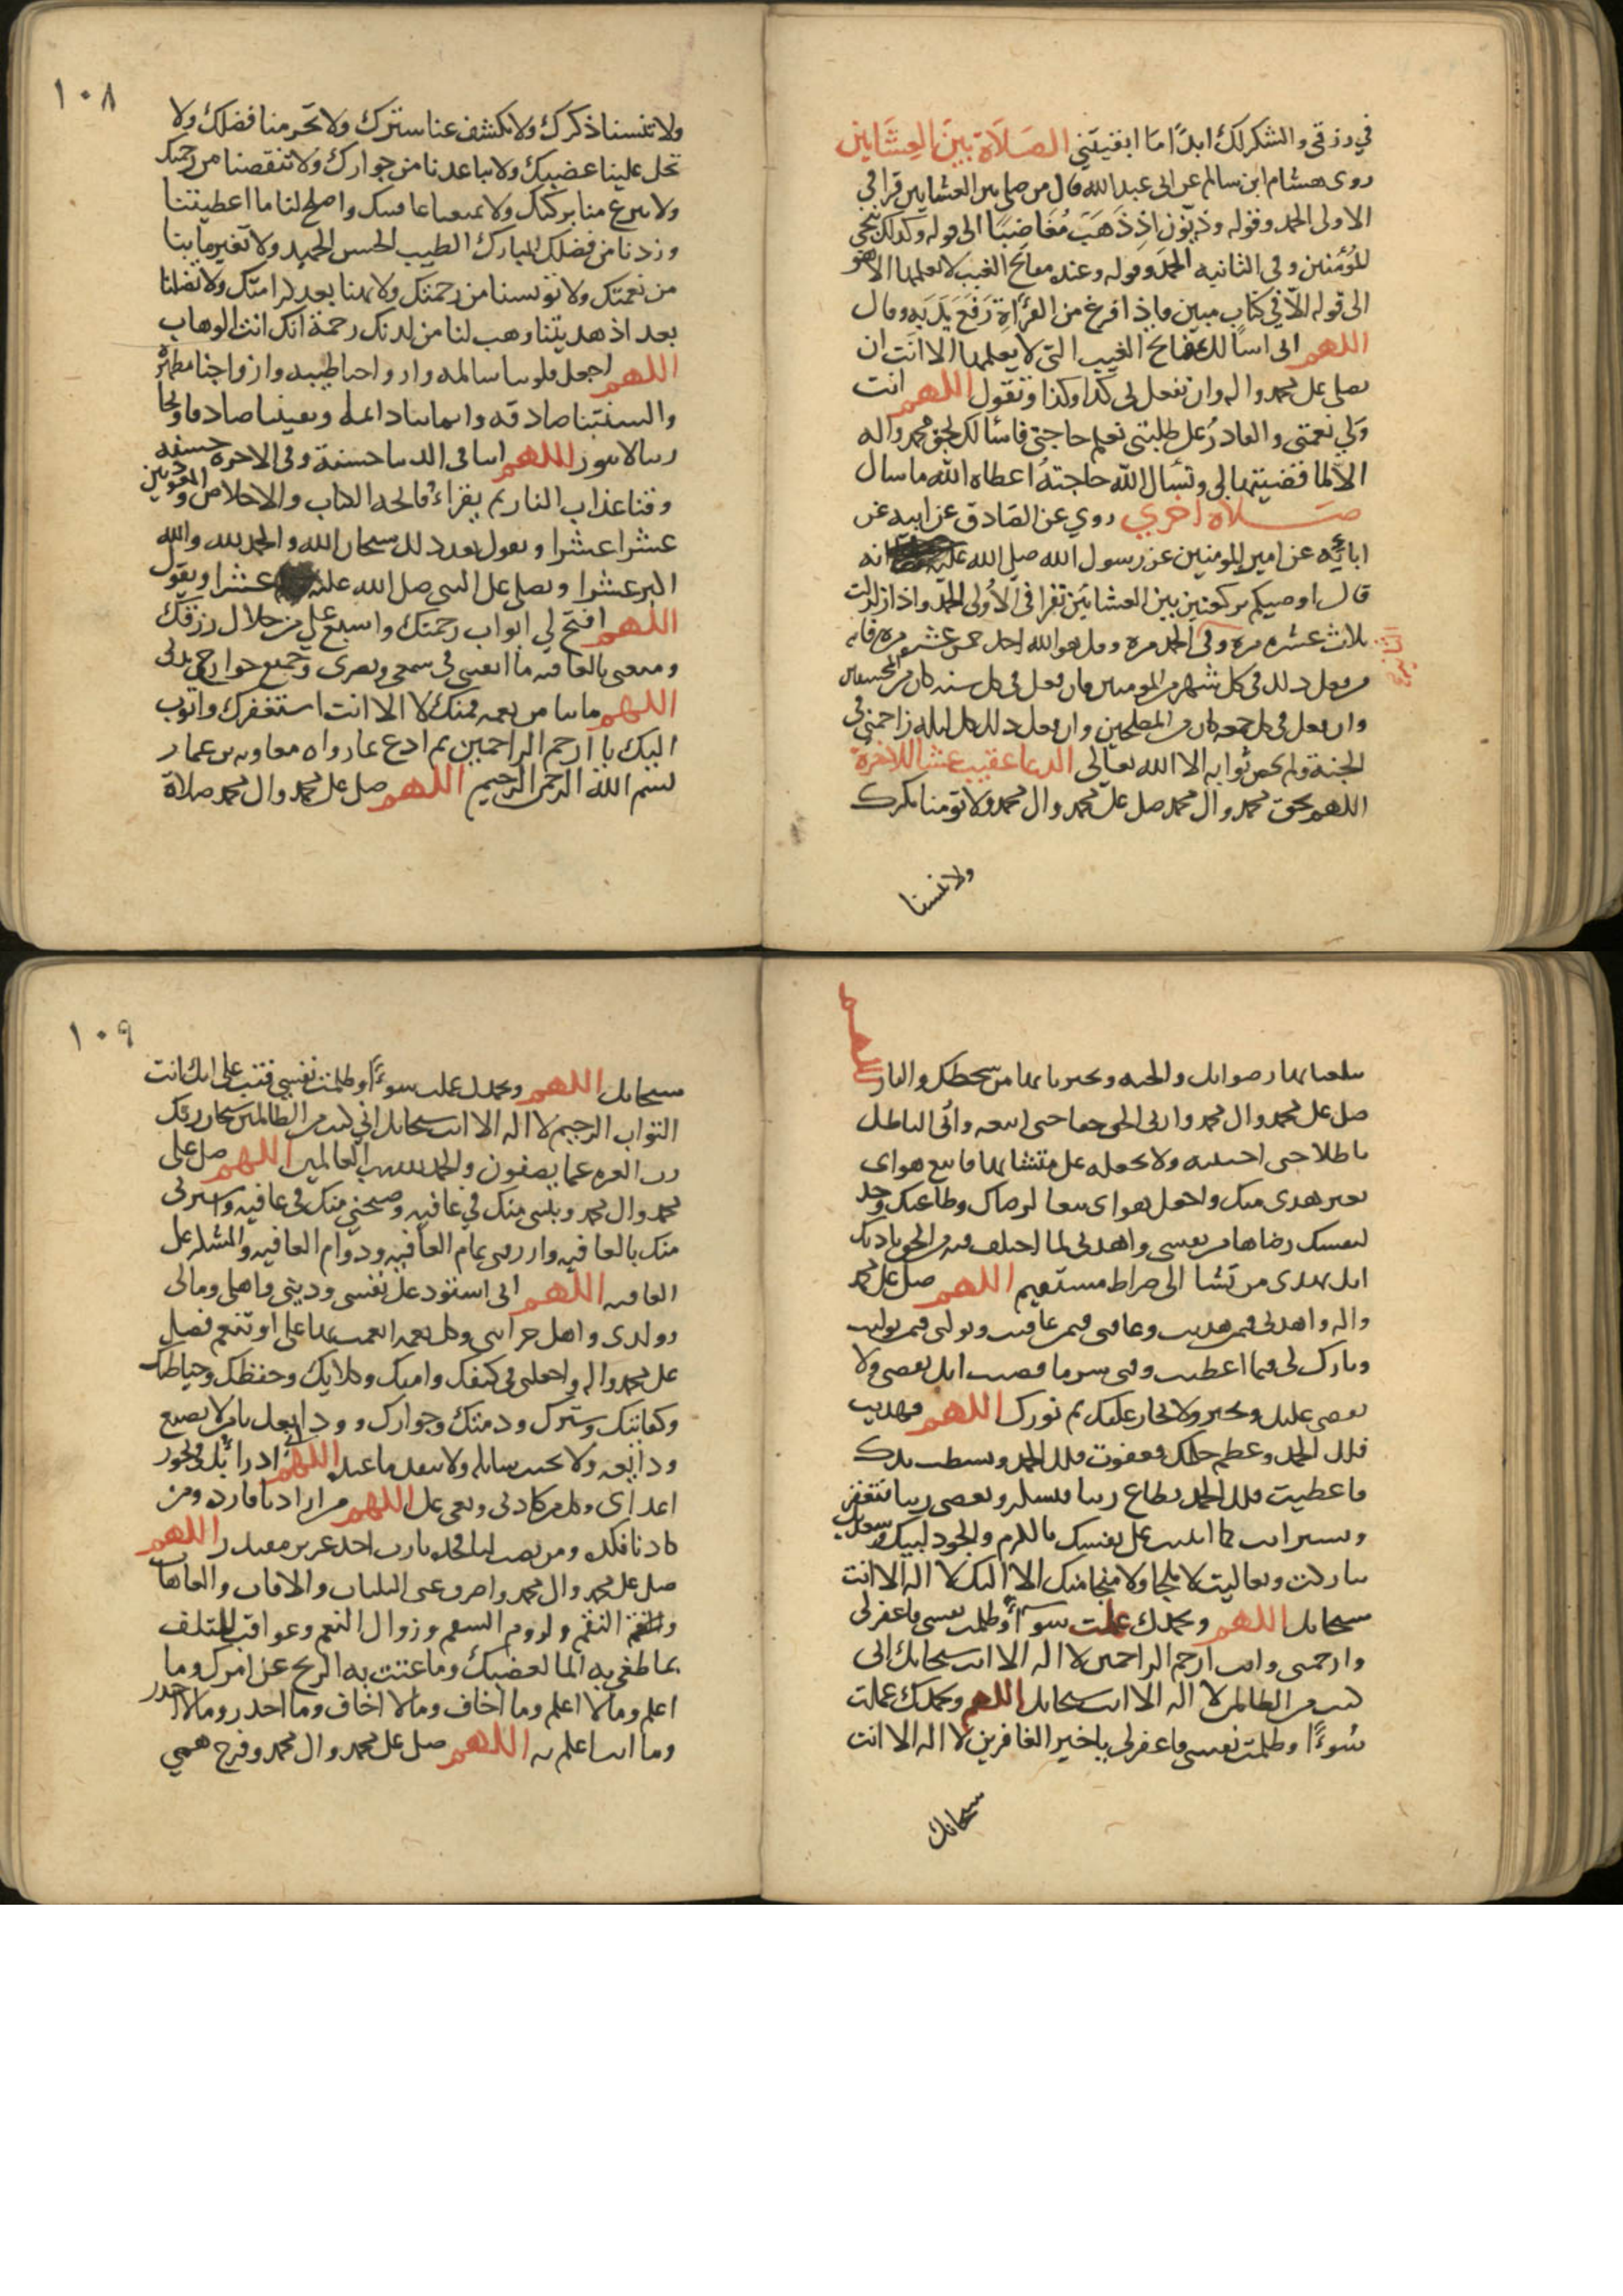 في رزقي والشكر لك ابدًا ما ابقيتني الصلاة بين العشاين
روى هشام ابن سالم عن ابى عبد الله قال من صلى بين العشاين قرا في
الاولى الحمد وقوله وذا النون اذ ذهب مغاضبًا الى قوله وكذلك ننجي
المؤمنين وفى الثانيه الحمد وقوله وعنده مفاتح الغيب لا يعلمها الا هو
الى قوله الا في كتاب مبين فاذا فرغ من القرأة رفع يديه وقال
اللهم انى اسألك بمفاتح الغيب التى لا يعلمها الا انت ان
تصلى على محمد واله وان تفعل بى كذا وكذا وتقول اللهم انت
ولي نعمتى والقادر على طلبتى تعلم حاجتى فاسألك بحق محمد واله
الا لما قضيتها لى وتسأل الله حاجته اعطاه الله ما سال
صلاة اخرى روي عن الصادق عن ابيه عن
ابائه عن امير المومنين عن رسول الله صلى الله عليه انه
قال اوصيكم بركعتين بين العشاين تقرا فى الاولى الحمد واذا زلزلت
ثلاث عشره مرة وفى الحمد مره وقل هو الله احد خمس عشره مره فانه
الثانيه
من فعل ذلك فى كل شهر من المومنين فان فعل فى كل سنه كان من المحسنين
وان فعل فى كل جمعه كان من المصلحين وان فعل ذلك كل ليله زاحمنى فى
الجنة ولم يحص ثوابه الا الله تعالى الدعا عقيب عشا الاخرة
اللهم بحق محمد وال محمد صل على محمد وال محمد ولا تومنا مكرك
ولا تنسنا
١٠٨
ولا تنسنا ذكرك ولا تكشف عنا سترك ولا تحرمنا فضلك ولا
تحل علينا غضبك ولا تباعدنا من جوارك ولا تنقصنا من رحمتك
ولا تنزع منا بركتك ولا تمنعنا عافيتك واصلح لنا ما اعطيتنا
وزدنا من فضلك المبارك الطيب الحسن الجميل ولا تغير ما بنا
من نعمتك ولا تويسنا من رحمتك ولا تهنا بعد كرامتك ولا تضلنا
بعد اذ هديتنا وهب لنا من لدنك رحمة انك انت الوهاب
اللهم اجعل قلوبنا سالمه وارواحنا طيبه وازواجنا مطهرة
والسنتنا صادقه وايماننا دائما ويقيننا صادقا وتجا
رتنا لا تبور اللهم اتنا فى الدنيا حسنة وفى الاخره حسنه
وقنا عذاب النار ثم يقراء فاتحه الكتاب والاخلاص والمعوذتين
عشرا عشرا وتقول بعد ذلك سبحان الله والحمد لله والله
اكبر عشرا وتصلى على النبى صلى الله عليه عشرا ويقول
اللهم افتح لي ابواب رحمتك واسبغ علي من حلال رزقك
ومتعنى بالعافيه ما ابقيتنى فى سمعى وبصرى وجميع جوارح بدنى
اللهم ما بنا من نعمه فمنك لا اله الا انت استغفرك واتوب
اليك يا ارحم الراحمين ثم ادع بما رواه معاويه بن عمار
بسم الله الرحمن الرحيم اللهم صل على محمد وال محمد صلاة
تبلغنا بها رضوانك والجنه وتنجينا بها من سخطك والنار اللهم
صل على محمد وال محمد وارنى الحق حقا حتى اتبعه وارنى الباطل
باطلا حتى اجتنبه ولا تجعله على متشابها فاتبع هواى
بغير هدى منك واجعل هواى تبعا لرضاك وطاعتك وخذ
لنفسك رضاها من نفسى واهدنى لما اختلف فيه من الحق باذنك
انك تهدى من تشا الى صراط مستقيم اللهم صل على محمد
واله واهدنى فيمن هديت وعافنى فيمن عافيت وتولنى فيمن توليت
وبارك لى فيما اعطيت وقنى شر ما قضيت انك تقضى ولا
يقضى عليك وتجير ولا يجار عليك تم نورك اللهم فهديت
فلك الحمد وعظم حلمك فعفوت فلك الحمد وبسطت يدك
فاعطيت فلك الحمد تطاع ربنا فتشكر وتعصى ربنا فتغفر
وتستر انت كما اثنيت على نفسك بالكرم والجود لبيك وسعديك
تباركت وتعاليت لا ملجا ولا منجا منك الا اليك لا اله الا انت
سبحانك اللهم وبحمدك عملت سوءًا وظلمت نفسى فاغفر لى
وارحمنى وانت ارحم الراحمين لا اله الا انت سبحانك انى
كنت من الظالمين لا اله الا انت سبحانك اللهم وبحمدك عملت
سوءًا وظلمت نفسى فاغفر لى يا خير الغافرين لا اله الا انت
سبحانك
١٠٩
سبحانك اللهم وبحمدك عملت سوءًا وظلمت نفسي فتب على انك انت
التواب الرحيم لا اله الا انت سبحانك اني كنت من الظالمين سبحان ربك
رب العزه عما يصفون والحمد لله رب العالمين اللهم صل على
محمد وال محمد وبيتنى منك في عافيه وصبحني منك فى عافيه واسترنى
منك بالعافيه وارزقنى تمام العافيه ودوام العافيه والشكر على
العافيه اللهم انى استودعك نفسى ودينى واهلى ومالى
وولدى واهل حزانتى وكل نعمه انعمت بها على او تنعم فصل
على محمد واله واجعلنى فى كنفك وامنك وكلايك وحفظك وحياطتك
وكفايتك وسترك وذمتك وجوارك وودايعك يا من لا تضيع
ودائعه ولا يخيب سايله ولا ينفد ما عنده اللهم انى ادرا بك فى نحور
اعداى وكل من كادنى وبغى على اللهم من ارادنا فارده ومن
كادنا فكده ومن نصب لنا فخذه يا رب اخذ عزيز مقتدر اللهم
صل على محمد وال محمد واصرف عنى البليات والافات والعاهات
والنقم ولزوم السقم وزوال النعم وعواقب التلف
بما طغى به الما لغضبك وما عتت به الريح عن امرك وما
اعلم وما لا اعلم وما اخاف وما لا اخاف وما احذر وما لا احذر
وما انت اعلم به اللهم صل على محمد وال محمد وفرج همى